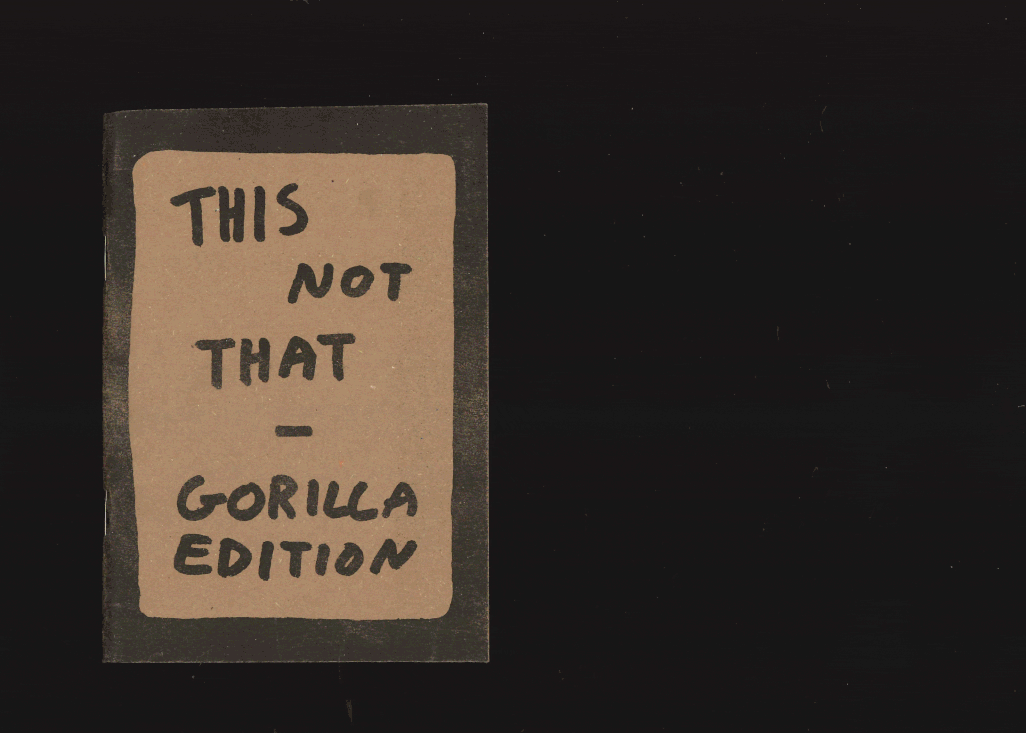 THIS
NOT
THAT
—
GORILLA
EDITION